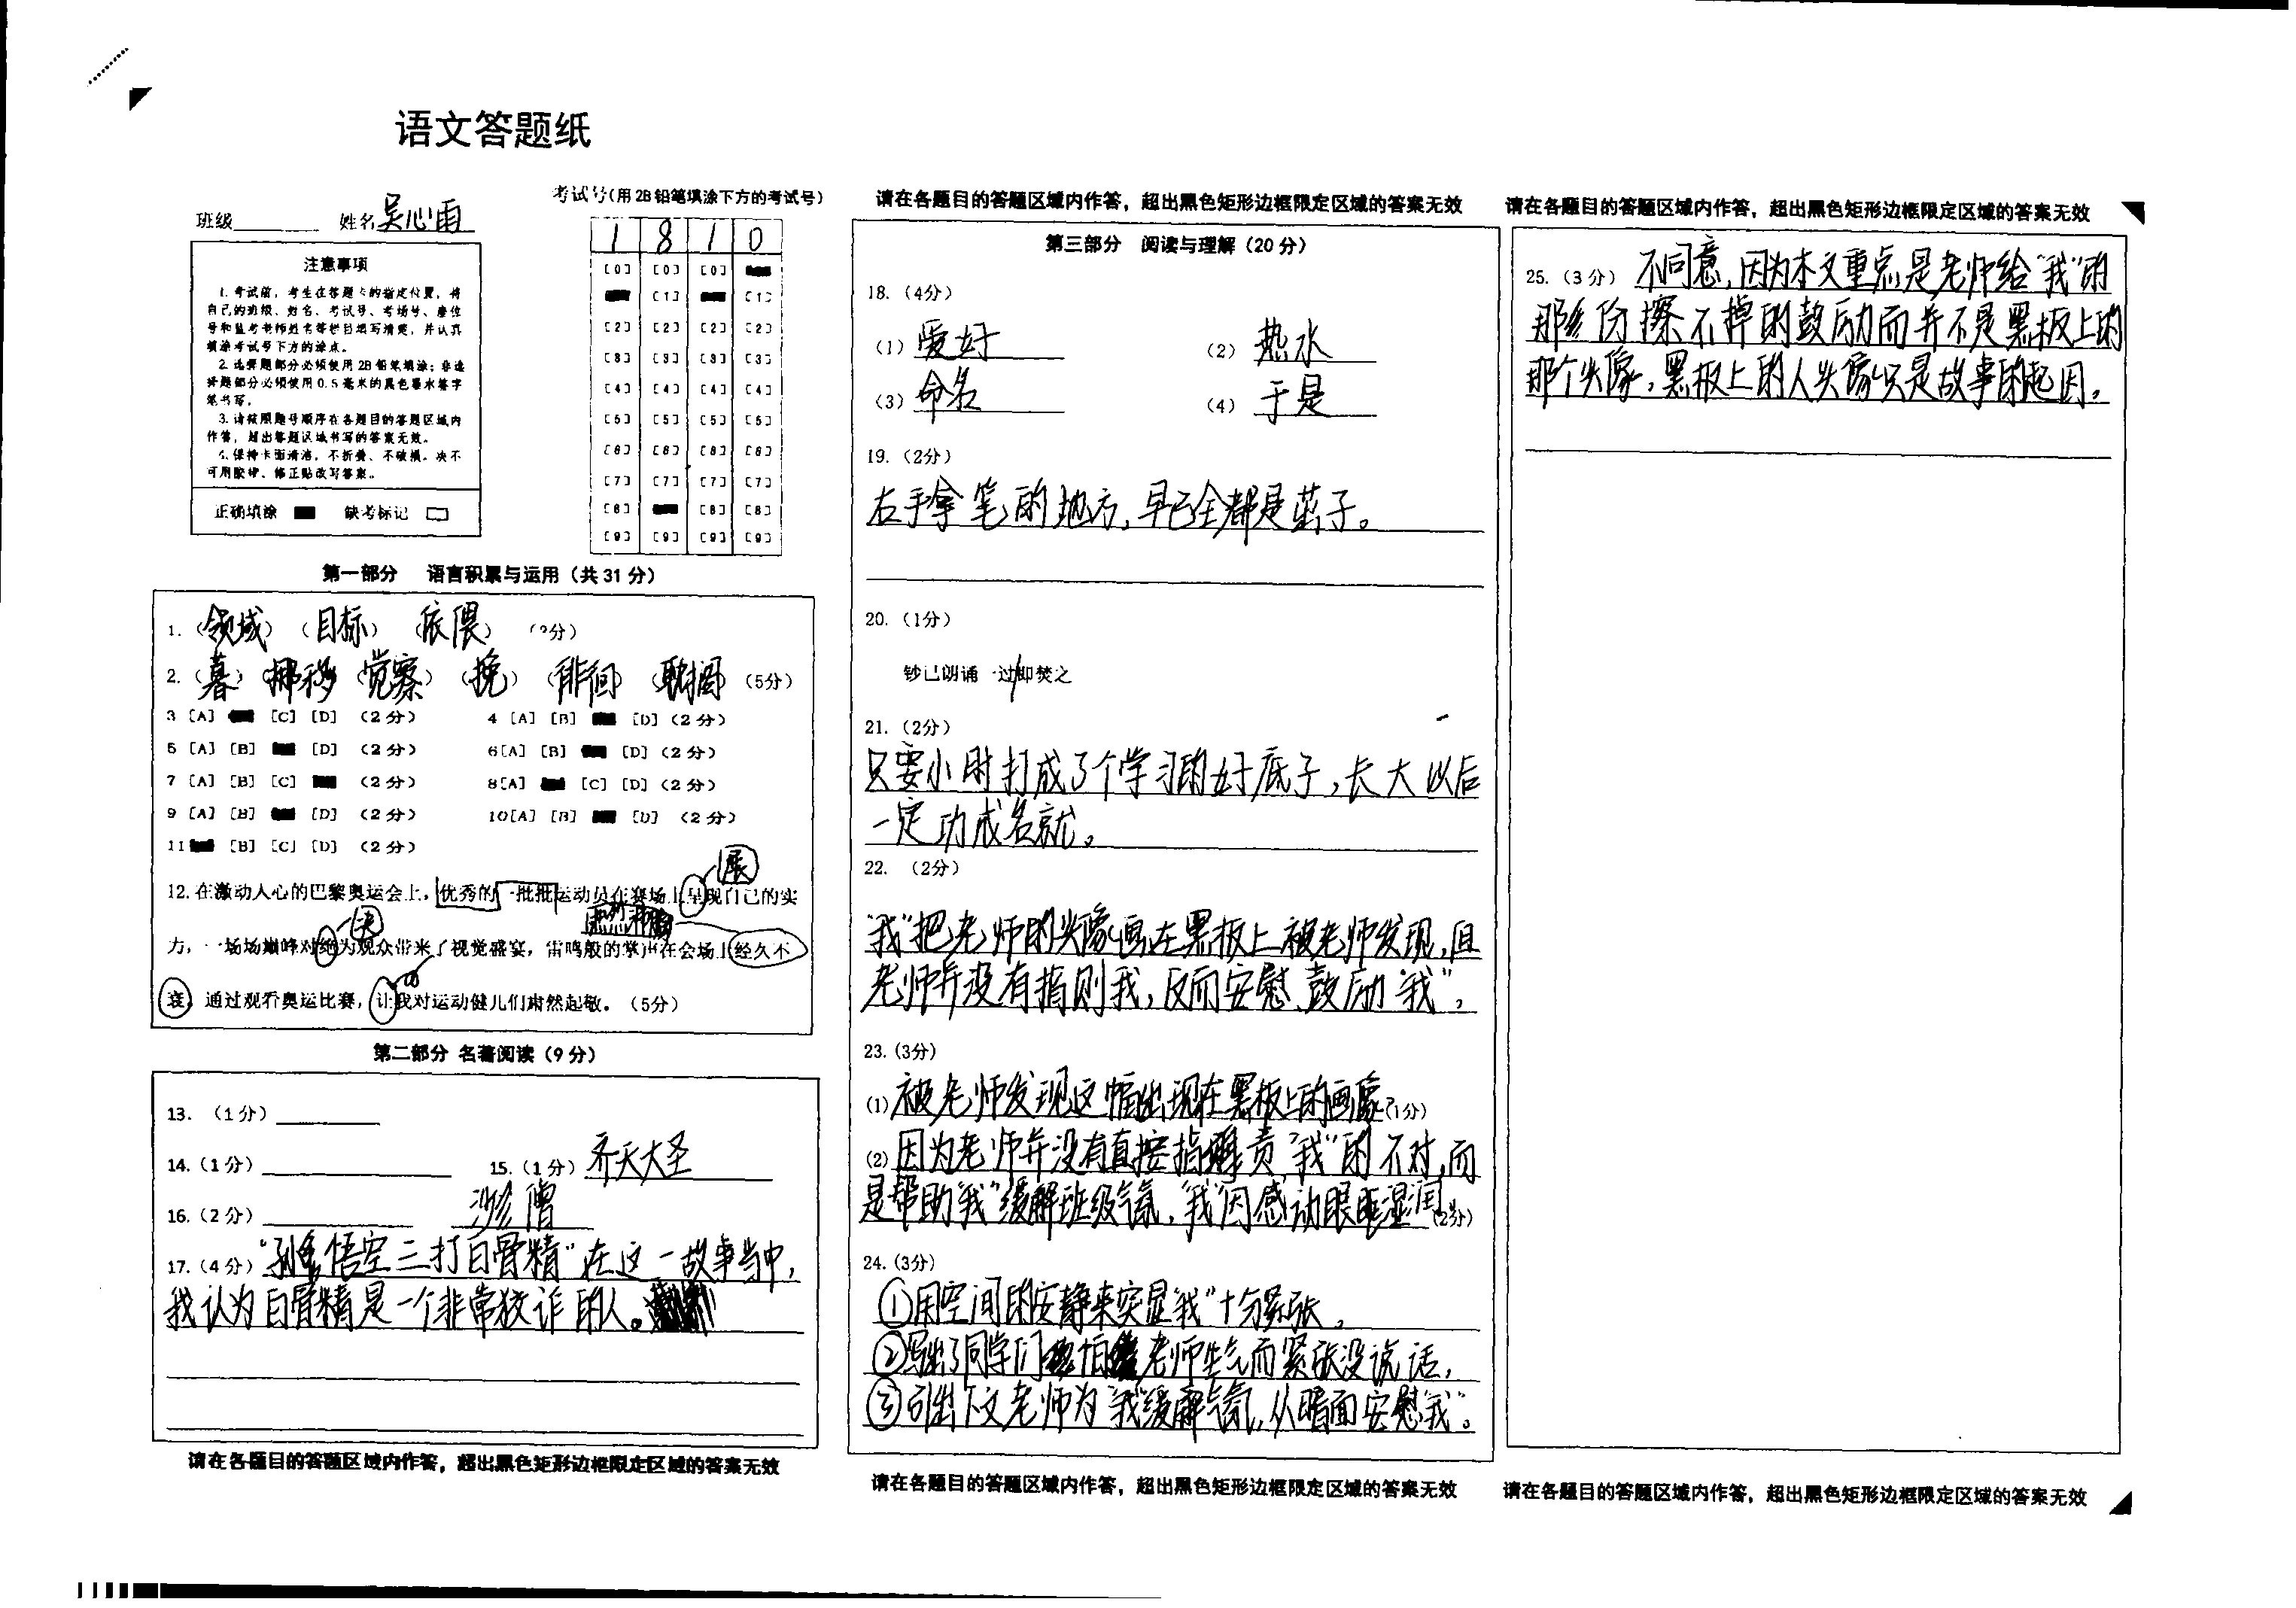 语文答题纸
班级 姓名 吴心雨
考试号(用2B铅笔填涂下方的考试号)
1 8 1 0
[0] [0] [0]
[1] [1]
[2] [2] [2] [2]
[3] [3] [3] [3]
[4] [4] [4] [4]
[5] [5] [5] [5]
[6] [6] [6] [6]
[7] [7] [7] [7]
[8] [8] [8]
[9] [9] [9] [9]
注意事项
1. 考试前,考生在答题卡的指定位置,将
自己的班级、姓名、考试号、考场号、座位
号和监考老师姓名等栏目填写清楚,并认真
填涂考试号下方的涂点。
2. 选择题部分必须使用2B铅笔填涂;非选
择题部分必须使用0.5毫米的黑色墨水签字
笔书写。
3. 请按照题号顺序在各题目的答题区域内
作答,超出答题区域书写的答案无效。
4. 保持卡面清洁,不折叠、不破损。决不
可用胶带、修正贴改写答案。
正确填涂 缺考标记
第一部分 语言积累与运用(共31分)
1. (领域) (目标) (依偎)
2. (暮) (挪移) (觉察) (挽) (徘徊) (耽搁) (5分)
3 [A] [C] [D] (2分) 4 [A] [B] [D] (2分)
5 [A] [B] [D] (2分) 6 [A] [B] [D] (2分)
7 [A] [B] [C] (2分) 8 [A] [C] [D] (2分)
9 [A] [B] [D] (2分) 10 [A] [B] [D] (2分)
11 [B] [C] [D] (2分)
展
12. 在激动人心的巴黎奥运会上,优秀的一批批运动员在赛场上呈现自己的实
决
力,一场场巅峰对绝为观众带来了视觉盛宴,雷鸣般的掌声在会场上经久不
衰。通过观看奥运比赛,让我对运动健儿们肃然起敬。(5分)
第二部分 名著阅读(9分)
13. (1分)
14. (1分) 15. (1分) 齐天大圣
16. (2分) 沙僧
17. (4分) “孙悟空三打白骨精”在这一故事当中,
我认为白骨精是一个非常狡诈的人。
请在各题目的答题区域内作答,超出黑色矩形边框限定区域的答案无效
请在各题目的答题区域内作答,超出黑色矩形边框限定区域的答案无效
第三部分 阅读与理解(20分)
18. (4分)
(1) 爱好 (2) 热水
(3) 命名 (4) 于是
19. (2分)
右手拿笔的地方,早已全都是茧子。
20. (1分)
钞已朗诵一过即焚之
21. (2分)
只要小时打成了个学习的好底子,长大以后
一定功成名就。
22. (2分)
“我”把老师的头像画在黑板上被老师发现,但
老师并没有指则我,反而安慰、鼓励“我”,
23. (3分)
(1) 被老师发现这幅出现在黑板上的画像 (1分)
(2) 因为老师并没有直接指责“我”的不对,而
是帮助“我”缓解班级气氛,“我”因感动眼眶湿润 (2分)
24. (3分)
①用空间的安静来突显“我”十分紧张。
②写出了同学们怕老师生气而紧张没说话,
③引出下文老师为“我”缓解气氛,从暗面安慰“我”。
请在各题目的答题区域内作答,超出黑色矩形边框限定区域的答案无效
请在各题目的答题区域内作答,超出黑色矩形边框限定区域的答案无效
25. (3分) 不同意,因为本文重点是老师给“我”的
那份擦不掉的鼓励而并不是黑板上的
那个头像,黑板上的人头像只是故事的起因。
请在各题目的答题区域内作答,超出黑色矩形边框限定区域的答案无效